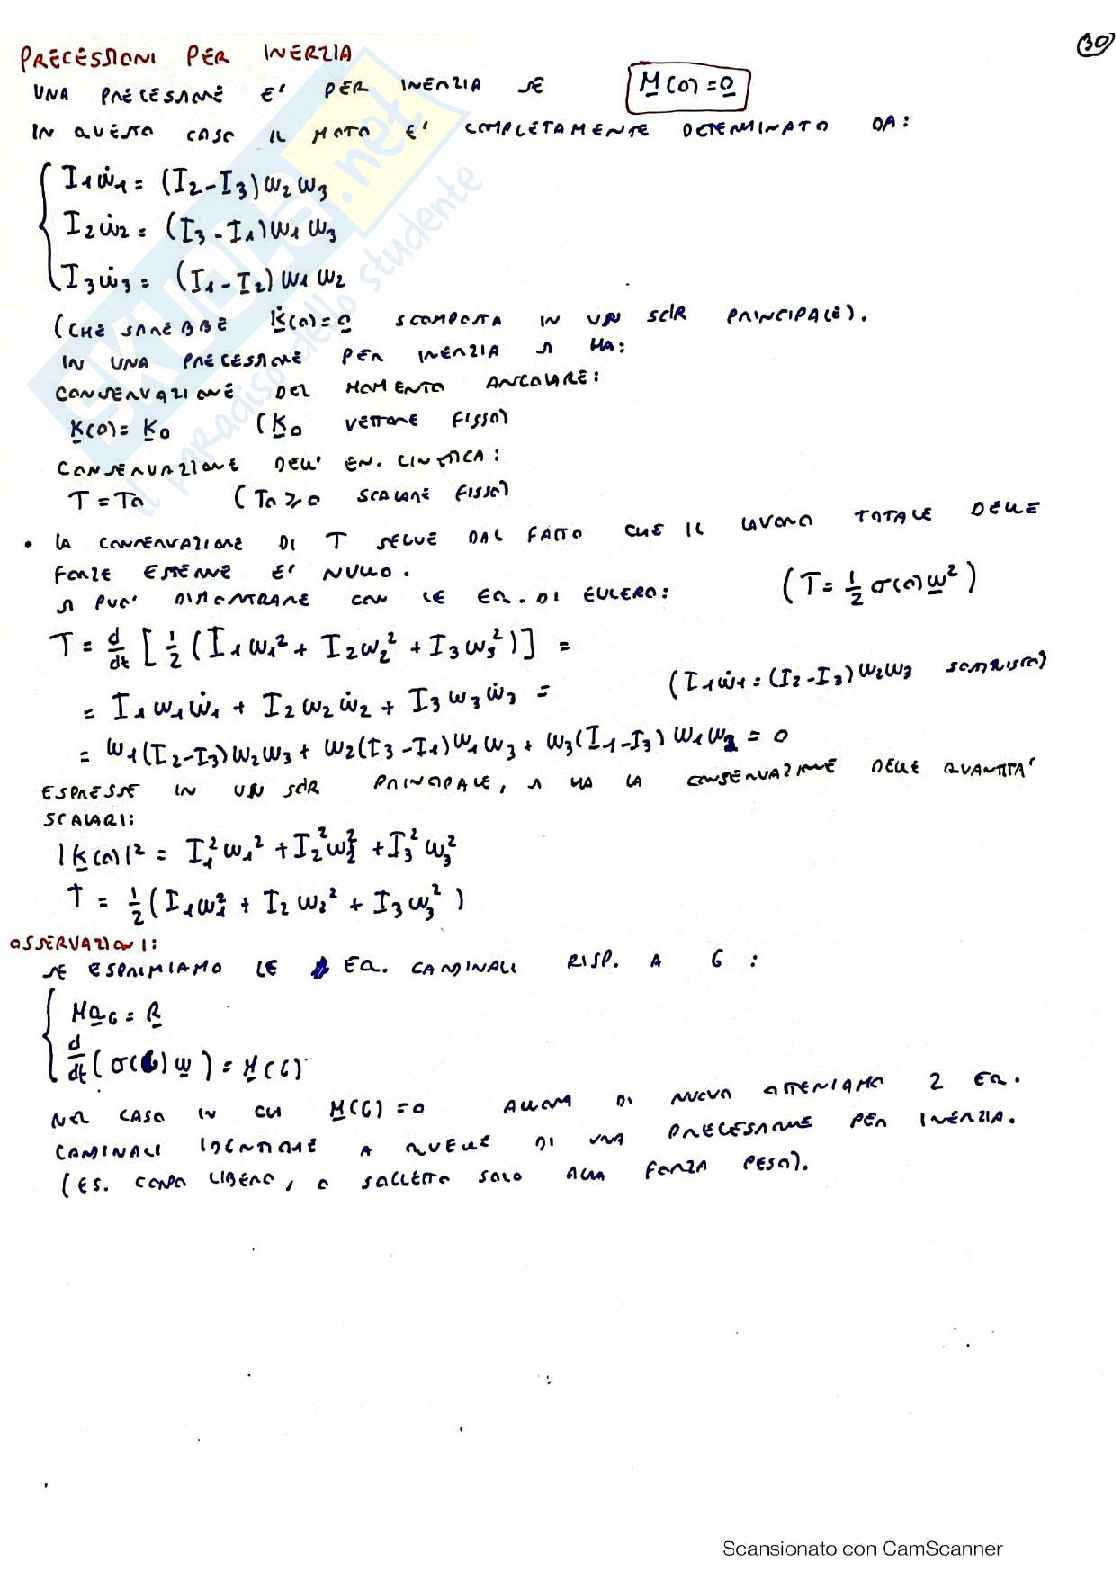 30
PRECESSIONI PER INERZIA
UNA PRECESSIONE E' PER INERZIA SE M(O)=0
IN QUESTO CASO IL MOTO E' COMPLETAMENTE DETERMINATO DA:
I₁ω̇₁ = (I₂-I₃)ω₂ω₃
I₂ω̇₂ = (I₃-I₁)ω₁ω₃
I₃ω̇₃ = (I₁-I₂)ω₁ω₂
(CHE SAREBBE K̇(O)=0 SCOMPOSTA IN UN SDR PRINCIPALE).
IN UNA PRECESSIONE PER INERZIA SI HA:
CONSERVAZIONE DEL MOMENTO ANGOLARE:
K(O)=K₀ (K₀ VETTORE FISSO)
CONSERVAZIONE DELL' EN. CINETICA:
T=T₀ (T₀ ≥ 0 SCALARE FISSO)
• LA CONSERVAZIONE DI T SEGUE DAL FATTO CHE IL LAVORO TOTALE DELLE
FORZE ESTERNE E' NULLO.
SI PUO' DIMOSTRARE CON LE EQ. DI EULERO: (T = ½ σ(O)ω²)
T = d/dt [½ (I₁ω₁² + I₂ω₂² + I₃ω₃²)] =
= I₁ω₁ω̇₁ + I₂ω₂ω̇₂ + I₃ω₃ω̇₃ = (I₁ω̇₁ = (I₂-I₃)ω₂ω₃
= ω₁(I₂-I₃)ω₂ω₃ + ω₂(I₃-I₁)ω₁ω₃ + ω₃(I₁-I₃)ω₁ω₂ = 0
ESPRESSE IN UN SDR PRINCIPALE, SI HA LA CONSERVAZIONE DELLE QUANTITA'
SCALARI:
|K(O)|² = I₁²ω₁² + I₂²ω₂² + I₃²ω₃²
T = ½(I₁ω₁² + I₂ω₂² + I₃ω₃²)
OSSERVAZIONI:
SE ESPRIMIAMO LE EQ. CARDINALI RISP. A G:
Ma_G = R
d/dt(σ(G)ω) = M(G)
NEL CASO IN CUI M(G)=0 ALLORA DI NUOVO OTTENIAMO 2 EQ.
CARDINALI IDENTICHE A QUELLE DI UNA PRECESSIONE PER INERZIA.
(ES. CORPO LIBERO, O SOGGETTO SOLO ALLA FORZA PESO).
SKUOLA.net
il paradiso dello studente
Scansionato con CamScanner